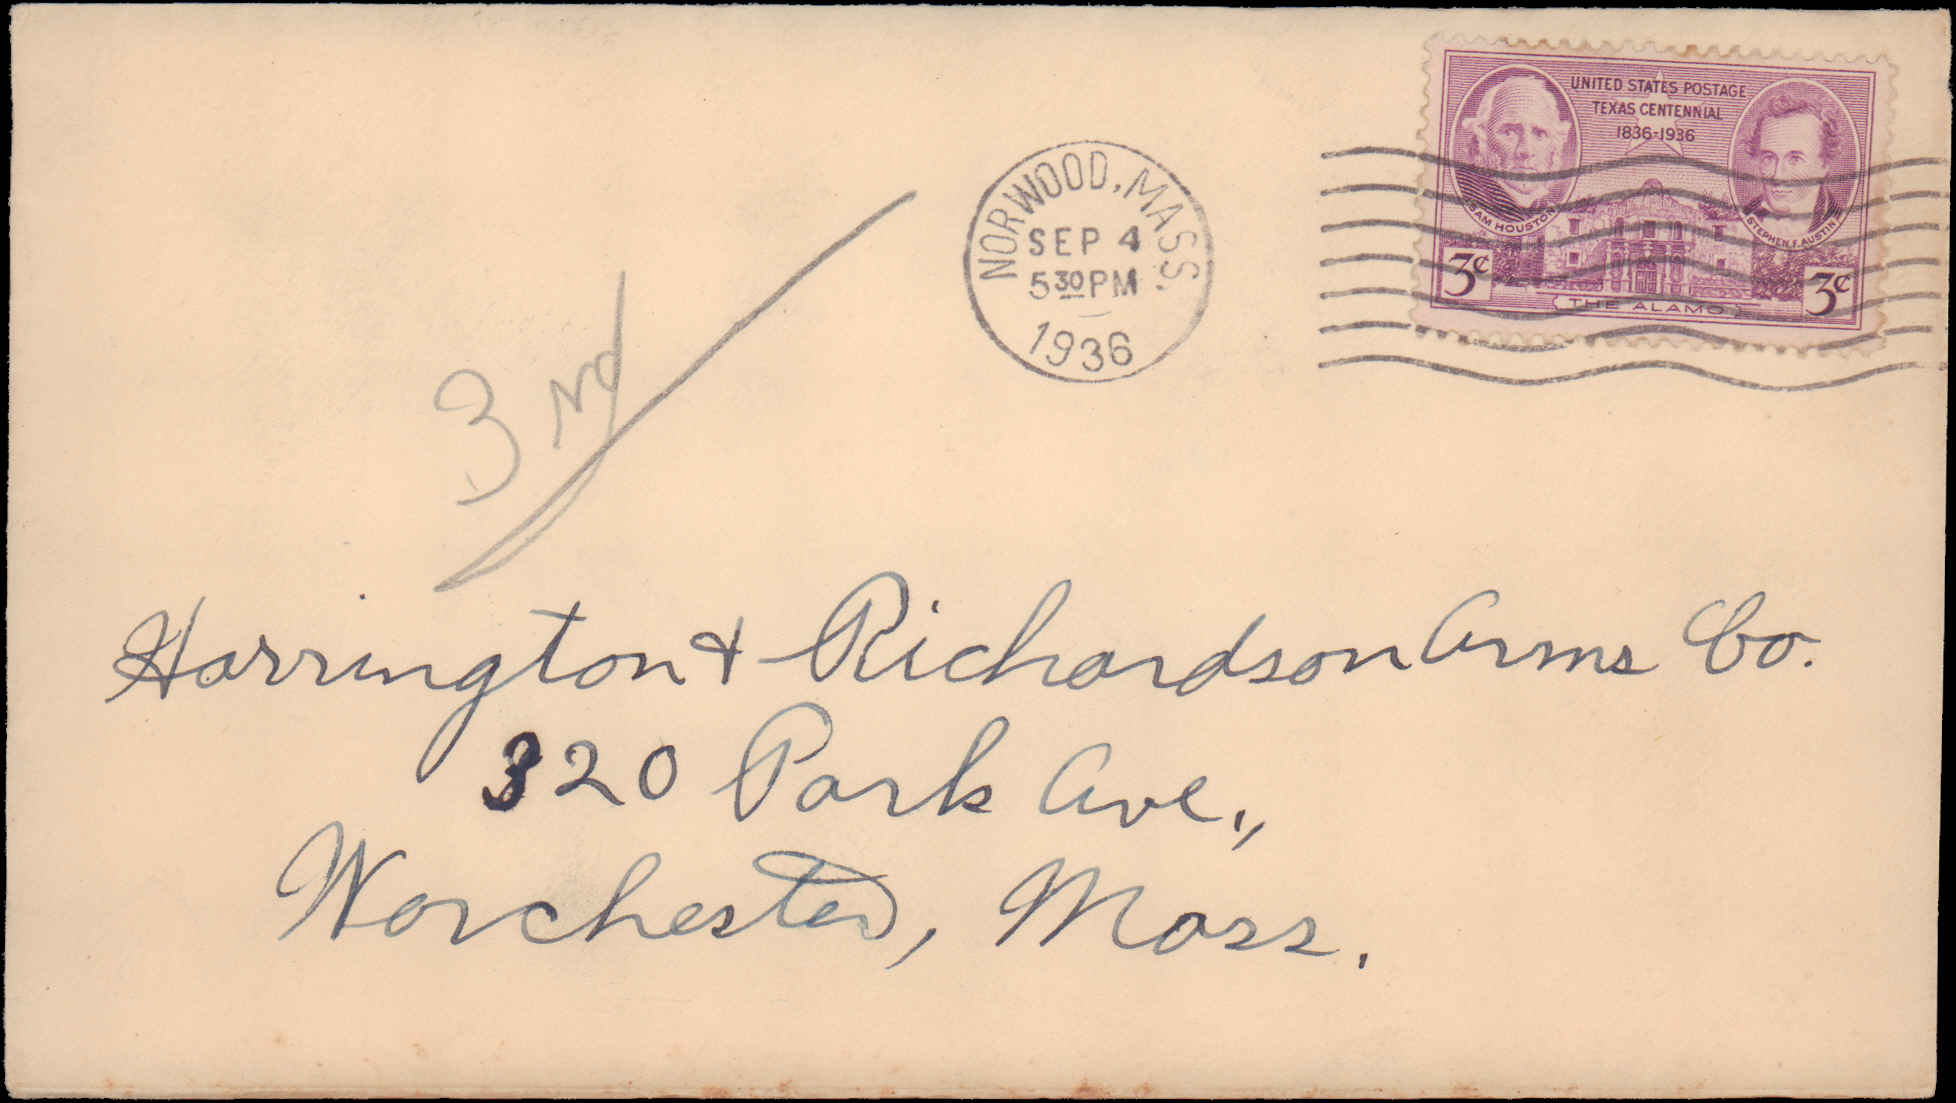 UNITED STATES POSTAGE
TEXAS CENTENNIAL
1836-1936
SAM HOUSTON
STEPHEN F. AUSTIN
3¢ 3¢
THE ALAMO
NORWOOD, MASS.
SEP 4
5 30 PM
1936
3rd
Harrington & Richardson Arms Co.
320 Park Ave.,
Worchester, Mass.